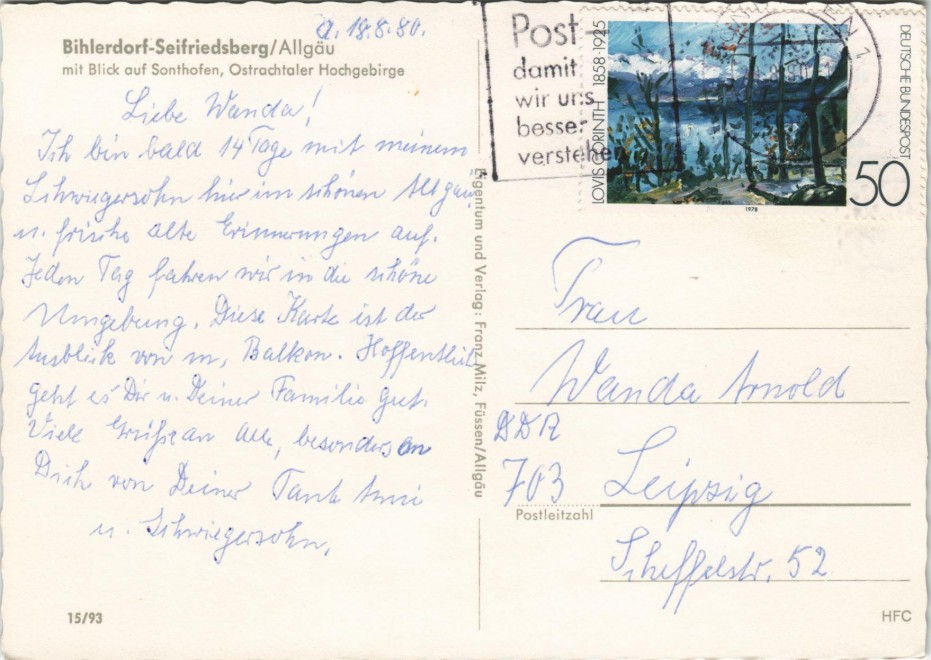 d. 18.8.80.
Bihlerdorf-Seifriedsberg/Allgäu
mit Blick auf Sonthofen, Ostrachtaler Hochgebirge
Liebe Wanda!
Ich bin bald 14 Tage mit meinem
Schwiegersohn hier im schönen Allgäu
u. frische alte Erinnerungen auf.
Jeden Tag fahren wir in die schöne
Umgebung. Diese Karte ist der
Ausblick von m, Balkon. Hoffentlich
geht es Dir u. Deiner Familie gut.
Viele Grüße an alle, besonders an
Dich von Deiner Tante
u. Schwiegersohn,
15/93
Eigentum und Verlag: Franz Milz, Füssen/Allgäu
Post -
damit
wir uns
besser
verstehen
LOVIS CORINTH 1858-1925
DEUTSCHE BUNDESPOST
50
1978
Frau
Wanda Arnold
DDR
703 Leipzig
Postleitzahl
Scheffelstr. 52
HFC